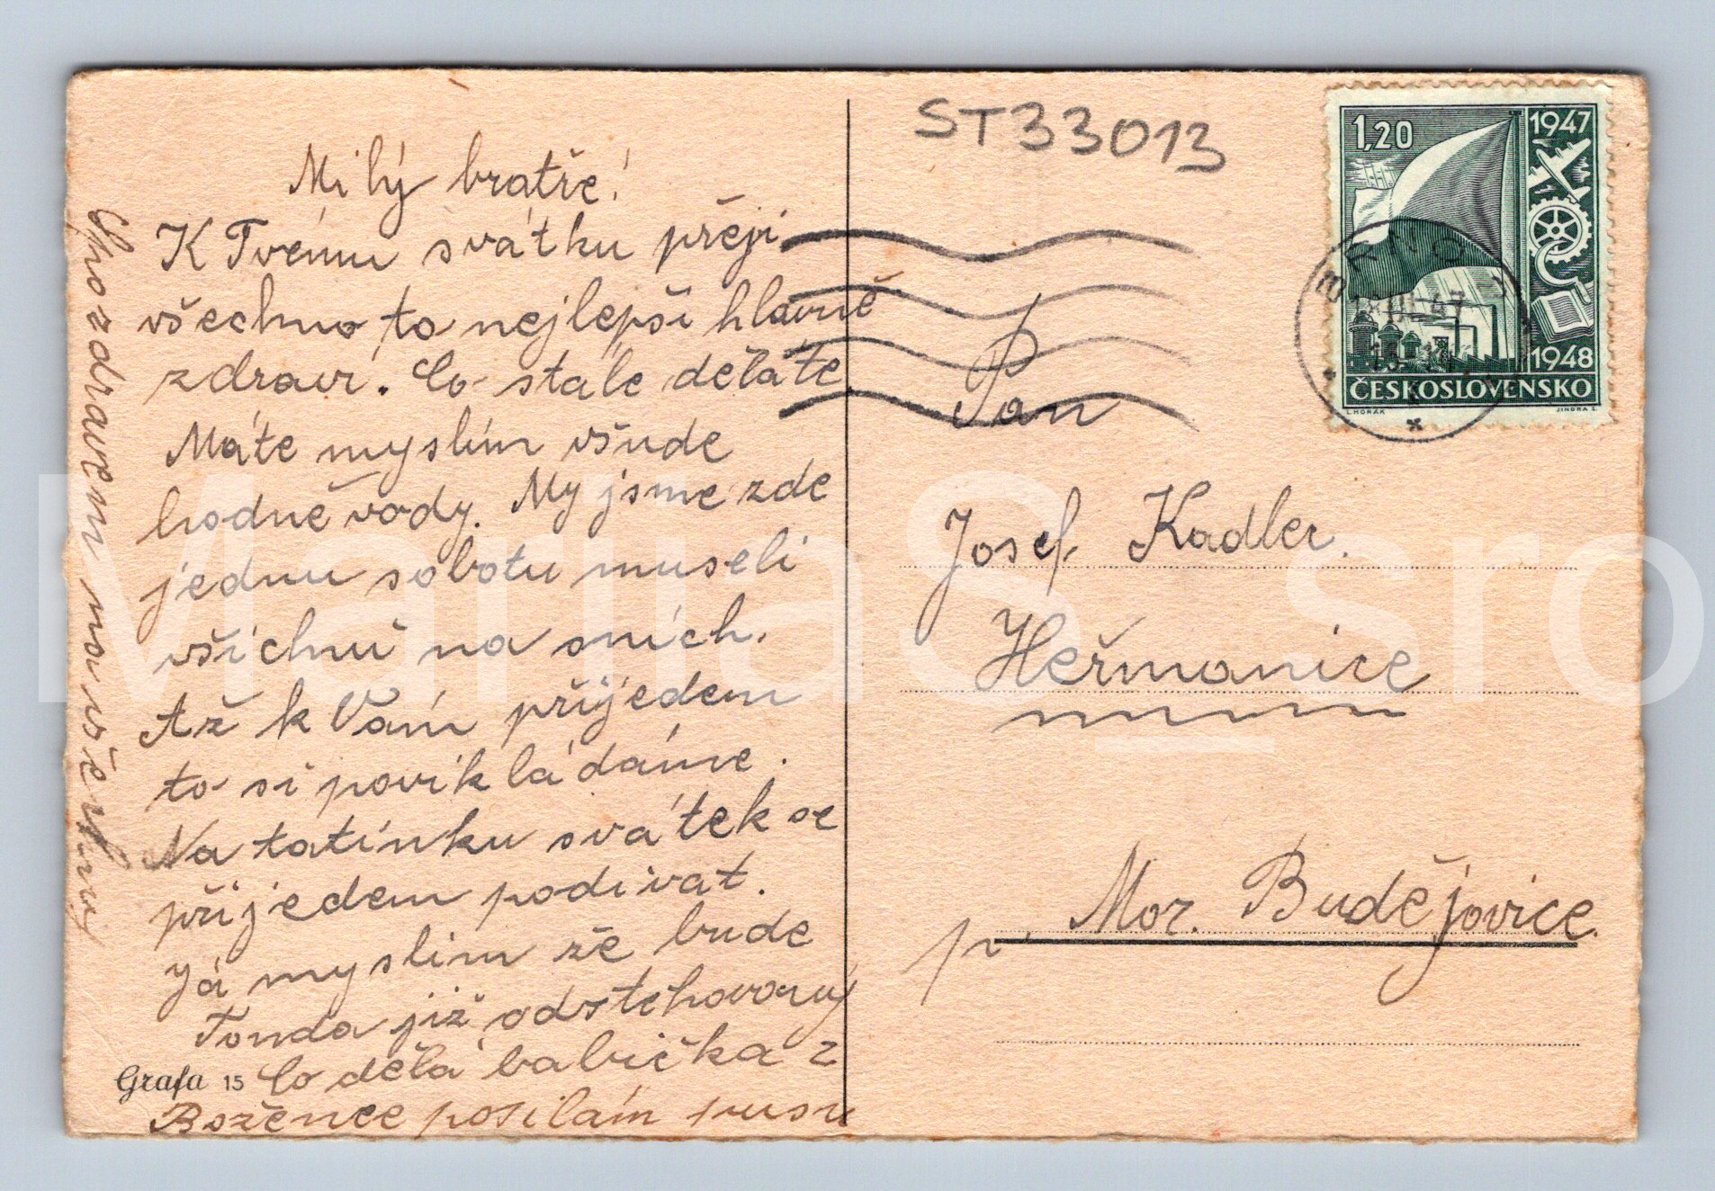 ST33013
Milý bratře!
K Tvému svátku přeji
všechno to nejlepši hlavně
zdraví. Co stale děláte
Máte myslím všude
hodně vody. My jsme zde
jednu sobotu museli
všichni na sních.
Až k Vám přijedem
to si povikládáme.
Na tatínku svátek se
přijedem podívat.
Já myslim že bude
Tonda již odstehovaný
Co děla babička z
Božence posilám pusu
S pozdravem na všechny
Grafa 15
Pan
Josef Kadler.
Heřmanice
p. Mor. Budějovice.
1,20
1947
1948
ČESKOSLOVENSKO
L.HORÁK
JINDRA S.
BRNO
MarijaS_sro